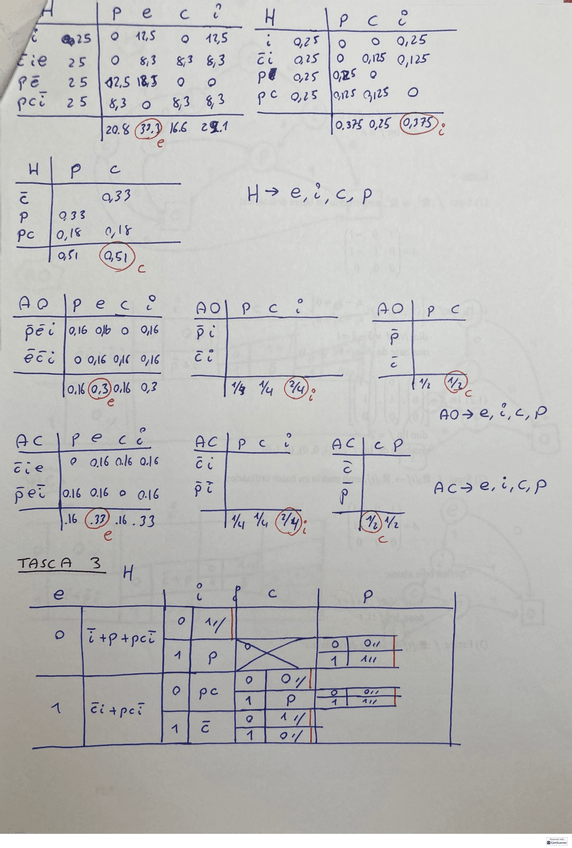 H P e c i
i 0,25 0 12,5 0 12,5
c̄ie 25 0 8,3 8,3 8,3
pē 25 12,5 0 0
pci 25 8,3 0 8,3 8,3
20.8 33.3 16.6
e
H P c i
i 0,25 0 0 0,25
c̄i 0,25 0 0,125 0,125
0,25 0
pc 0,25 0,125 0,125 0
0,375 0,25 0,375 i
H P c
c̄ 0,33
p 0,33
pc 0,18 0,18
0,51 0,51
c
H → e, i, c, p
AO P e c i
p̄ēi 0,16 0,16 0 0,16
ēc̄i 0 0,16 0,16 0,16
0,16 0,3 0,16 0,3
e
AO P c i
p̄i
c̄i
1/4 1/4 2/4 i
AO P c
p̄
c̄
1/2 1/2
c
AO → e, i, c, p
AC P e c i
c̄ie 0 0.16 0.16 0.16
p̄ei 0.16 0.16 0 0.16
.16 .33 .16 .33
e
AC P c i
c̄i
p̄i
1/4 1/4 2/4 i
AC c p
c̄
p
1/2 1/2
c
AC → e, i, c, p
TASCA 3 H
e i c P
0 ī+p+pcī 0 1,,
1 p 0 0,,
1 1,,
1 c̄i+pcī 0 pc 0 0,,
1 p 0 0,,
1 1,,
1 c̄ 0 1,,
1 0,,
CamScanner